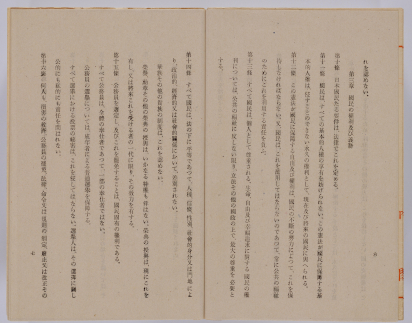 れを認めない。
第三章　國民の權利及び義務
第十條　日本國民たる要件は、法律でこれを定める。
第十一條　國民は、すべての基本的人權の享有を妨げられない。この憲法が國民に保障する基
本的人權は、侵すことのできない永久の權利として、現在及び將來の國民に與へられる。
第十二條　この憲法が國民に保障する自由及び權利は、國民の不斷の努力によつて、これを保
持しなければならない。又、國民は、これを濫用してはならないのであつて、常に公共の福祉
のためにこれを利用する責任を負ふ。
第十三條　すべて國民は、個人として尊重される。生命、自由及び幸福追求に對する國民の權
利については、公共の福祉に反しない限り、立法その他の國政の上で、最大の尊重を必要と
する。
第十四條　すべて國民は、法の下に平等であつて、人種、信條、性別、社會的身分又は門地によ
り、政治的、經濟的又は社會的關係において、差別されない。
華族その他の貴族の制度は、これを認めない。
榮譽、勳章その他の榮典の授與は、いかなる特權も伴はない。榮典の授與は、現にこれを
有し、又は將來これを受ける者の一代に限り、その效力を有する。
第十五條　公務員を選定し、及びこれを罷免することは、國民固有の權利である。
すべて公務員は、全體の奉仕者であつて、一部の奉仕者ではない。
公務員の選擧については、成年者による普通選擧を保障する。
すべて選擧における投票の祕密は、これを侵してはならない。選擧人は、その選擇に關し
公的にも私的にも責任を問はれない。
第十六條　何人も、損害の救濟、公務員の罷免、法律、命令又は規則の制定、廢止又は改正その